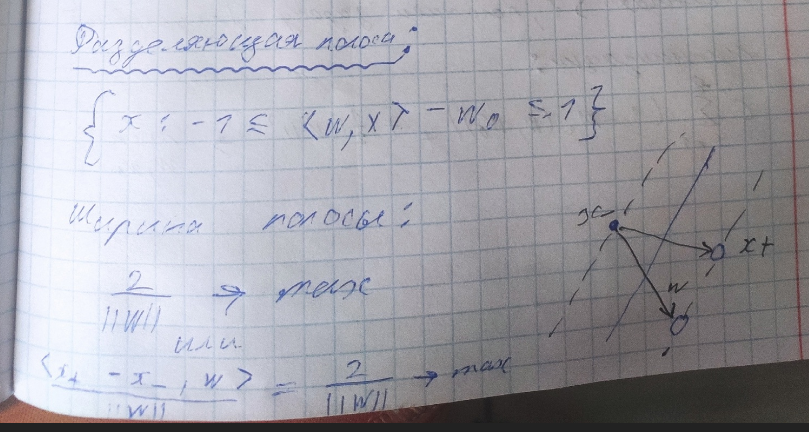 Разделяющая полоса:
{x : -1 ≤ ⟨w, x⟩ - w₀ ≤ 1}
Ширина полосы:
2 / ||w|| → max
или
⟨x₊ - x₋, w⟩ / ||w|| = 2 / ||w|| → max
x₋
x+
w